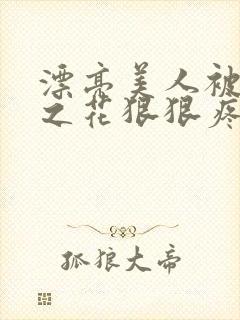 漂亮美人被
之花狠狠疼
孤狼大帝